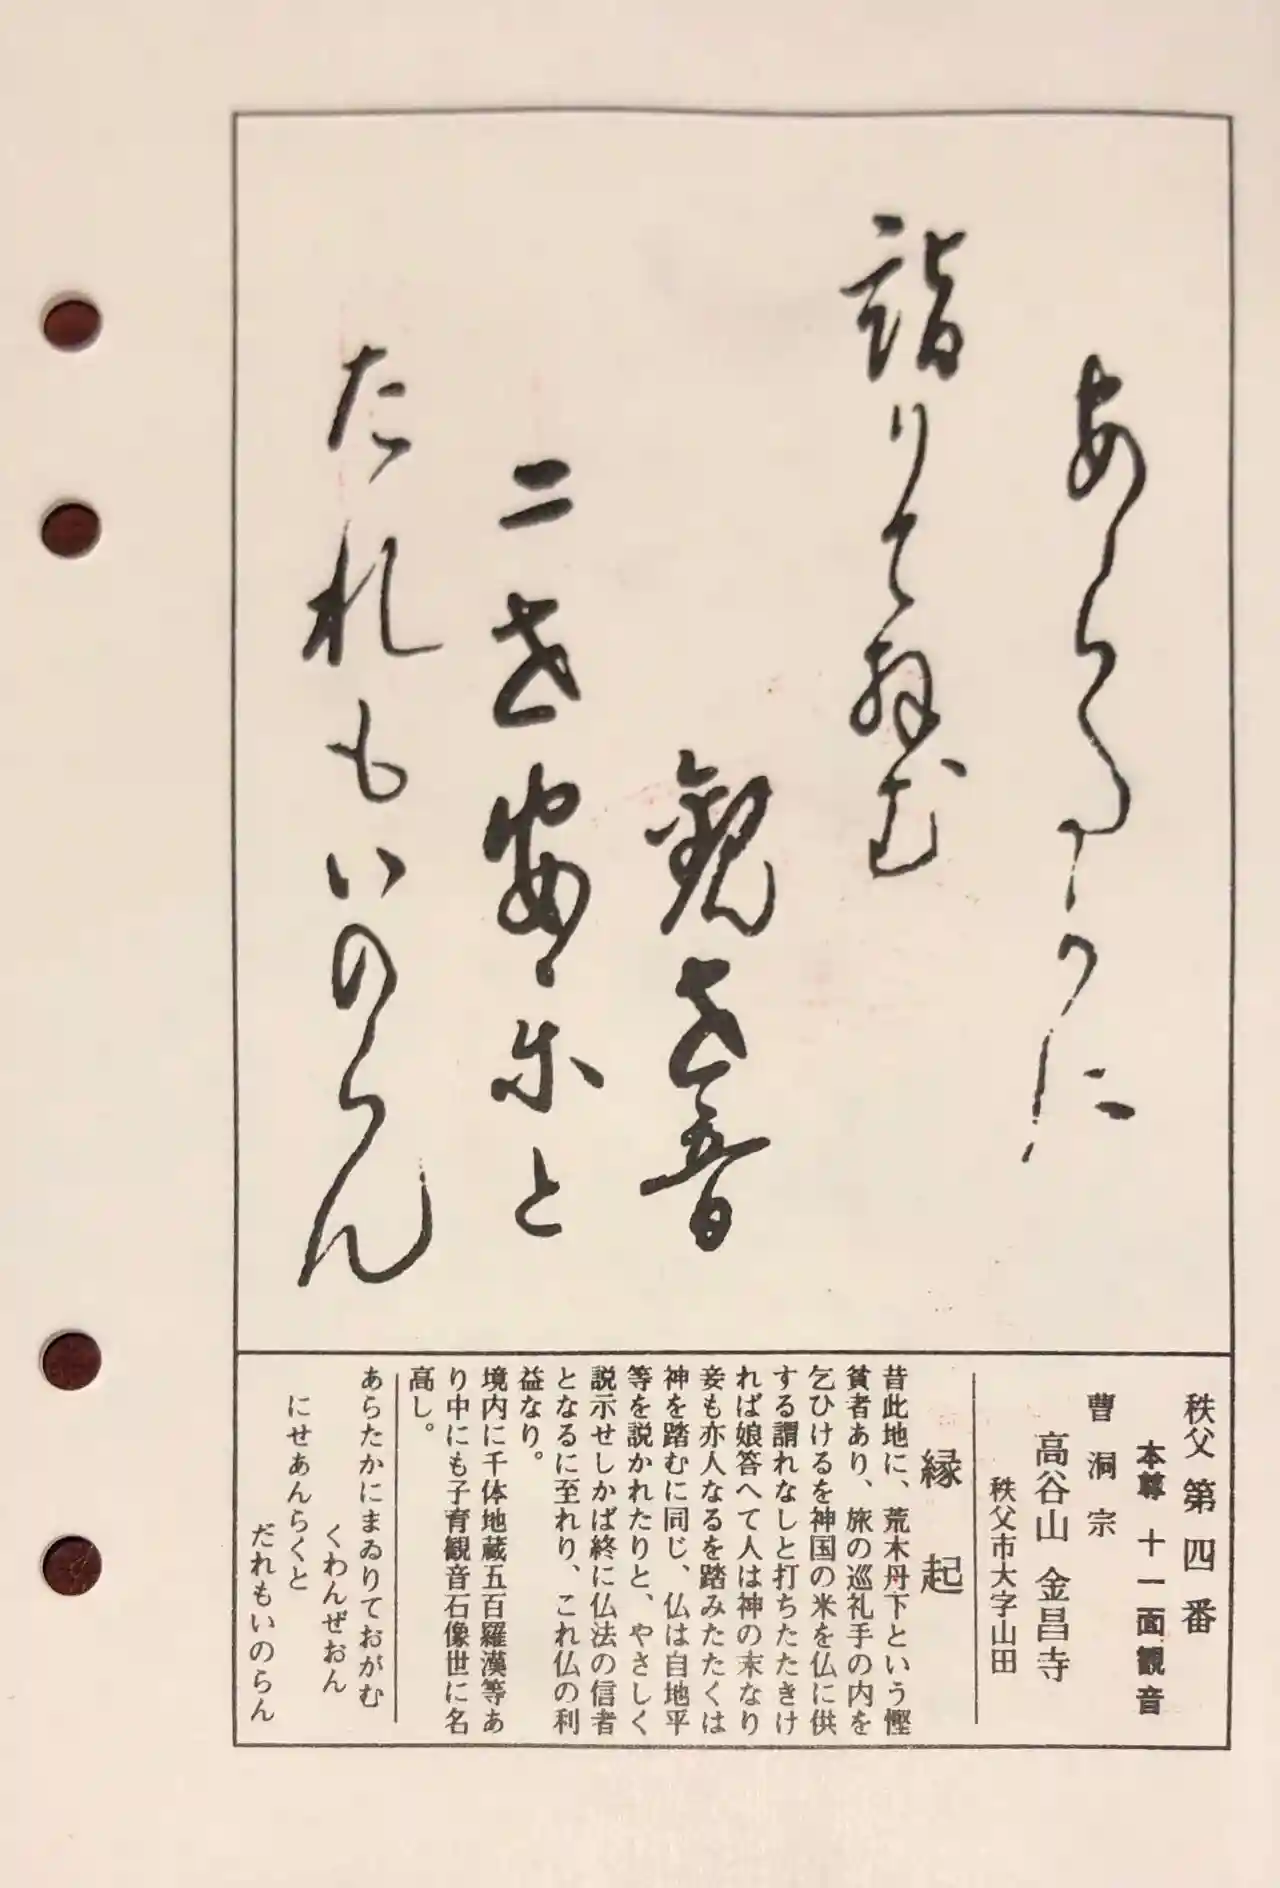 あらたかに
詣りておがむ
観世音
二世安楽と
たれもいのらん
秩父 第四番
本尊 十一面観音
曹洞宗
高谷山 金昌寺
秩父市大字山田
縁起
昔此地に、荒木丹下という慳
貧者あり、旅の巡礼手の内を
乞ひけるを神国の米を仏に供
する謂れなしと打ちたたきけ
れば娘答へて人は神の末なり
妾も亦人なるを踏みたたくは
神を踏むに同じ、仏は自地平
等を説かれたりと、やさしく
説示せしかば終に仏法の信者
となるに至れり、これ仏の利
益なり。
境内に千体地蔵五百羅漢等あ
り中にも子育観音石像世に名
高し。
あらたかにまゐりておがむ
くわんぜおん
にせあんらくと
だれもいのらん